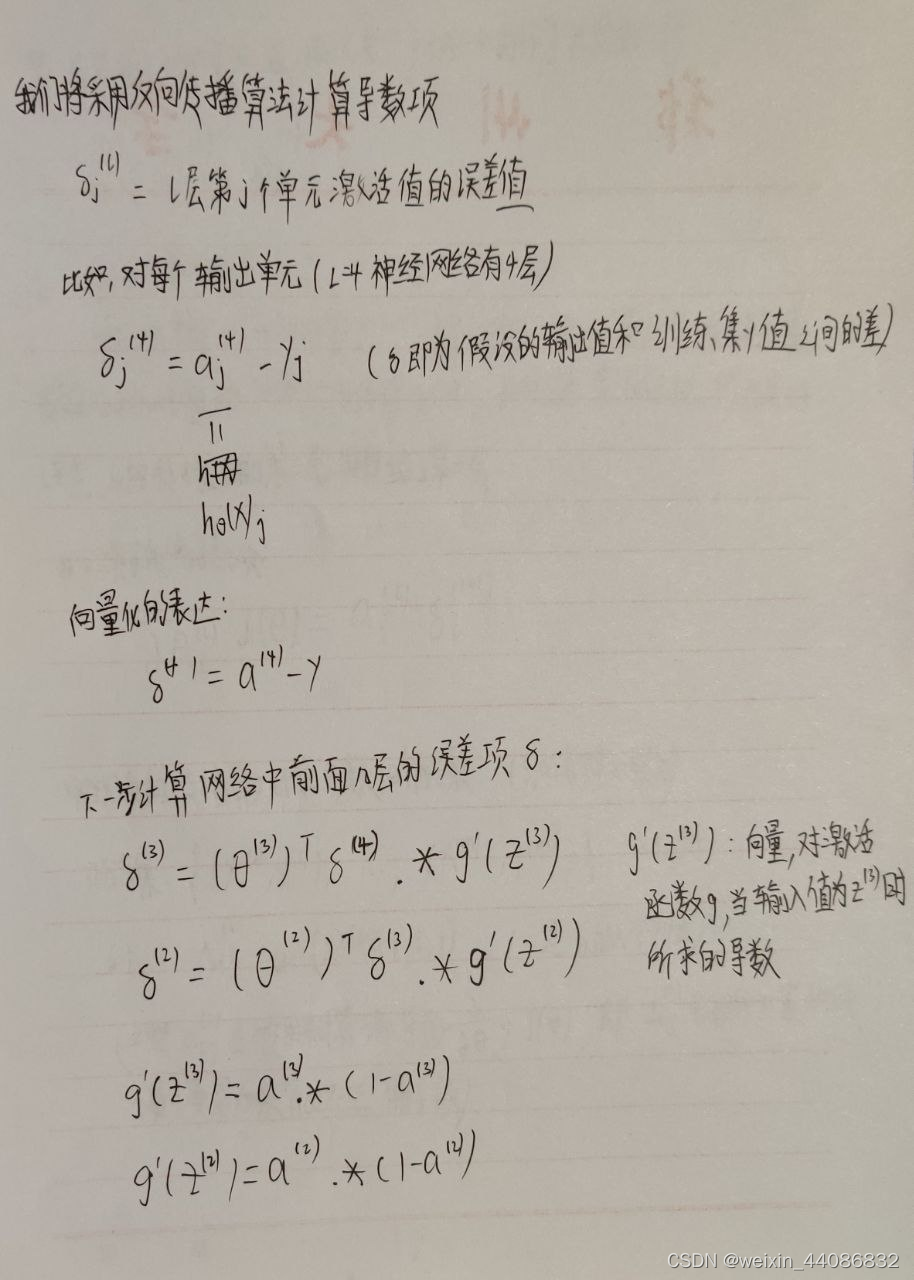 我们将采用反向传播算法计算导数项
δj^(l) = l层第j个单元激活值的误差值
比如,对每个输出单元(L=4 神经网络有4层)
δj^(4) = aj^(4) - yj (δ即为假设的输出值和训练集y值之间的差)
||
hθ(x)j
向量化的表达:
δ^(4) = a^(4) - y
下一步计算网络中前面几层的误差项 δ:
δ^(3) = (θ^(3))^T δ^(4) .* g'(z^(3))
g'(z^(3)):向量,对激活
函数g,当输入值为z^(3)时
所求的导数
δ^(2) = (θ^(2))^T δ^(3) .* g'(z^(2))
g'(z^(3)) = a^(3) .* (1-a^(3))
g'(z^(2)) = a^(2) .* (1-a^(2))
CSDN @weixin_44086832